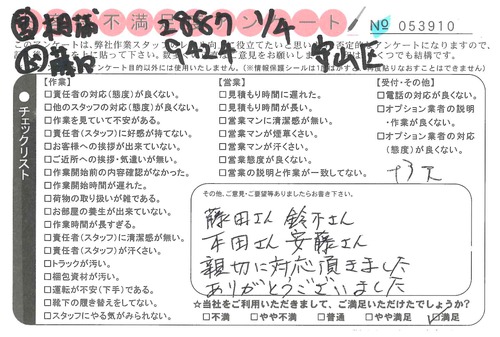 不満 アンケート № 053910
2887 1/4
守山区
【作業】
□責任者の対応(態度)が良くない。
□他のスタッフの対応(態度)が良くない。
□作業を見ていて不安がある。
□責任者(スタッフ)に好感が持てない。
□お客様への挨拶が出来ていない。
□ご近所への挨拶・気遣いが無い。
□作業開始前の内容確認がなかった。
□作業開始時間が遅れた。
□荷物の取り扱いが雑である。
□お部屋の養生が出来ていない。
□作業時間が長すぎる。
□責任者(スタッフ)に清潔感が無い。
□責任者(スタッフ)が汗くさい。
□トラックが汚い。
□梱包資材が汚い。
□運転が不安(下手)である。
□靴下の履き替えをしてない。
□スタッフにやる気がみられない。
【営業】
□見積もり時間に遅れた。
□見積もり時間が長い。
□営業マンに清潔感が無い。
□営業マンが煙草くさい。
□営業マンが汗くさい。
□営業態度が良くない。
□営業の説明と作業が一致してない。
【受付・その他】
□電話の対応が良くない。
□オプション業者の説明
・作業が良くない。
□オプション業者の対応
(態度)が良くない。
チェックリスト
その他、ご意見・ご要望等ありましたらお書き下さい。
藤田さん 鈴木さん
本田さん 安藤さん
親切に対応頂きました
ありがとうございました
☆当社をご利用いただきまして、ご満足いただけたでしょうか?
□不満 □やや不満 □普通 □やや満足 □満足